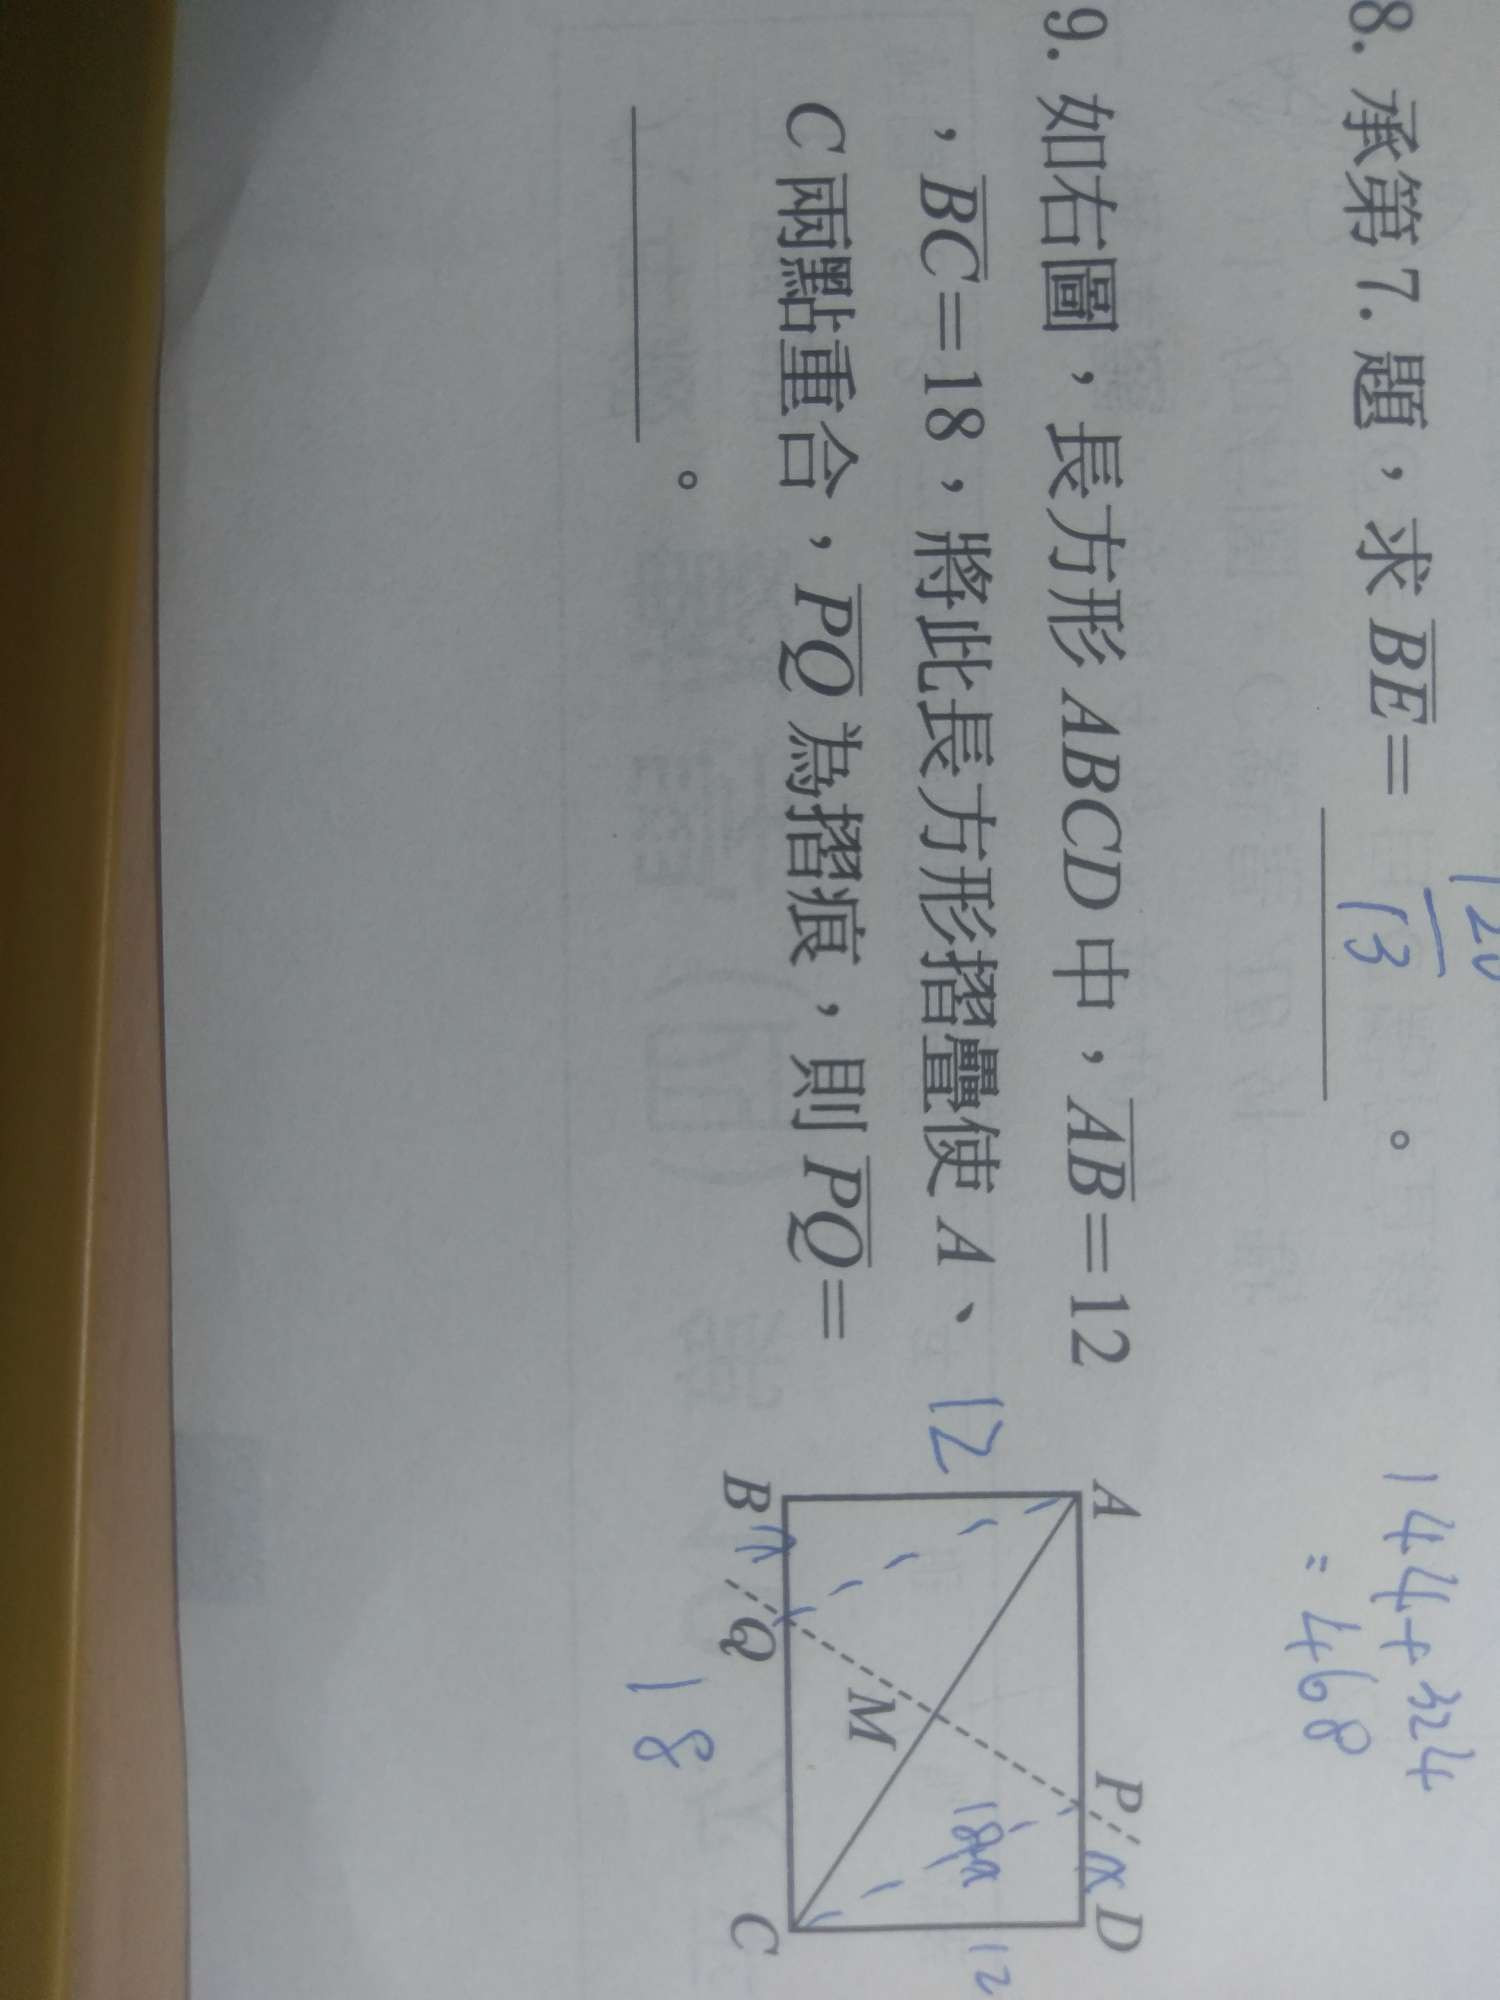 8. 承第 7. 題，求 BE= 120/13 。
144+324
=468
9. 如右圖，長方形 ABCD 中，AB=12
，BC=18，將此長方形摺疊使 A、
C 兩點重合，PQ 為摺痕，則 PQ=
。
A P D
x
12
18-x
12
M
B Q C
x
18